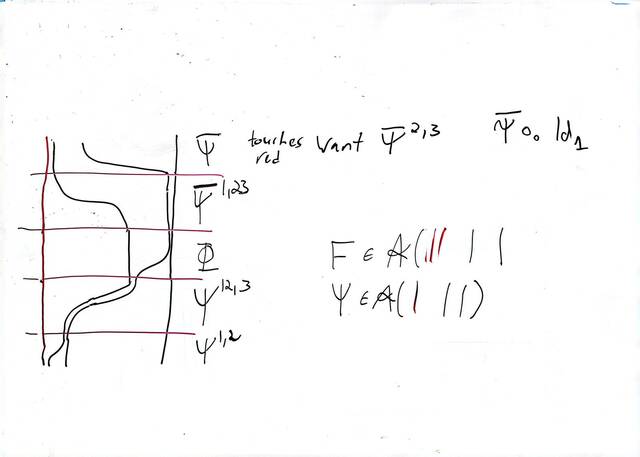 Ψ̄ touches red Want Ψ̄^2,3 Ψ̄ ∘₀ Id₁
Ψ̄^1,23
Φ
F ∈ A(|| | |
Ψ^12,3
Ψ ∈ A(| ||)
Ψ^1,2